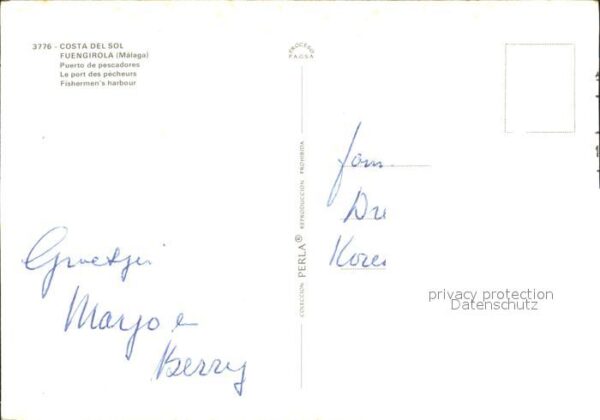 3776 - COSTA DEL SOL
FUENGIROLA (Málaga)
Puerto de pescadores
Le port des pêcheurs
Fishermen's harbour
Groetjes
Marjo en
Berry
PROCESO
FAGSA
COLECCION PERLA® REPRODUCCION PROHIBIDA
Fam.
privacy protection
Datenschutz